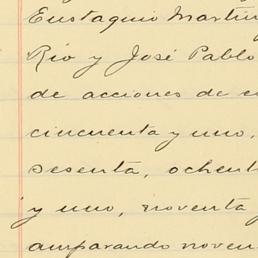 Eustaquio Martín
Río y José Pablo
de acciones de
cincuenta y uno,
sesenta, ochent
y uno, noventa y
amparando noven